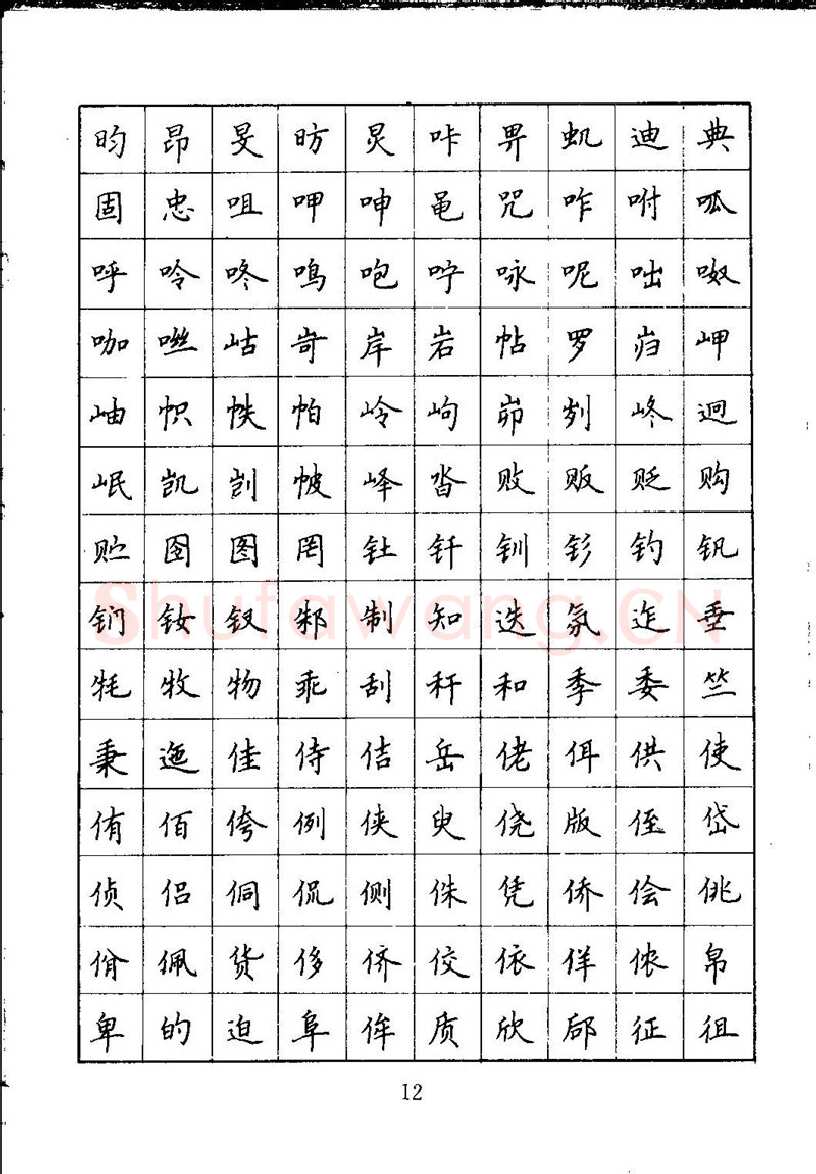 昀 昂 旻 昉 炅 咔 畀 虮 迪 典
固 忠 咀 呷 呻 黾 咒 咋 咐 呱
呼 呤 咚 鸣 咆 咛 咏 呢 咄 呶
咖 咝 岵 岢 岸 岩 帖 罗 岿 岬
岫 帜 帙 帕 岭 岣 峁 刿 峂 迥
岷 凯 剀 帔 峄 沓 败 贩 贬 购
贮 囹 图 罔 钍 钎 钏 钐 钓 钒
钔 钕 钗 邾 制 知 迭 氛 迮 垂
牦 牧 物 乖 刮 秆 和 季 委 竺
秉 迤 佳 侍 佶 岳 佬 佴 供 使
侑 佰 侉 例 侠 臾 侥 版 侄 岱
侦 侣 侗 侃 侧 侏 凭 侨 侩 佻
佾 佩 货 侈 侪 佼 依 佯 侬 帛
卑 的 迫 阜 侔 质 欣 郈 征 徂
12
Shufawang.CN